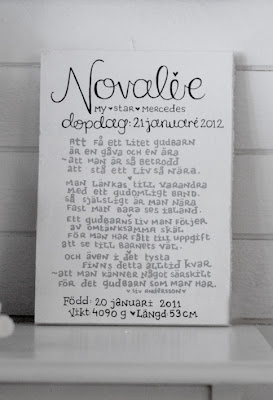 Novalie
My ♥ star ♥ Mercedes
dopdag: 21 januari 2012
Att få ett litet gudbarn
är en gåva och en ära
~att man är så betrodd
att stå ett liv så nära.
♥
Man länkas till varandra
med ett gudomligt band.
Så själsligt är man nära
fast man bara ses ibland.
Ett gudbarns liv man följer
av omtänksamma skäl
för man har fått till uppgift
att se till barnets väl.
Och även i det tysta
finns detta alltid kvar
~att man känner något särskilt
för det gudbarn som man har.
♥ Siv Andersson ♥
Född: 20 januari 2011
Vikt 4090 g ♥ Längd 53 cm